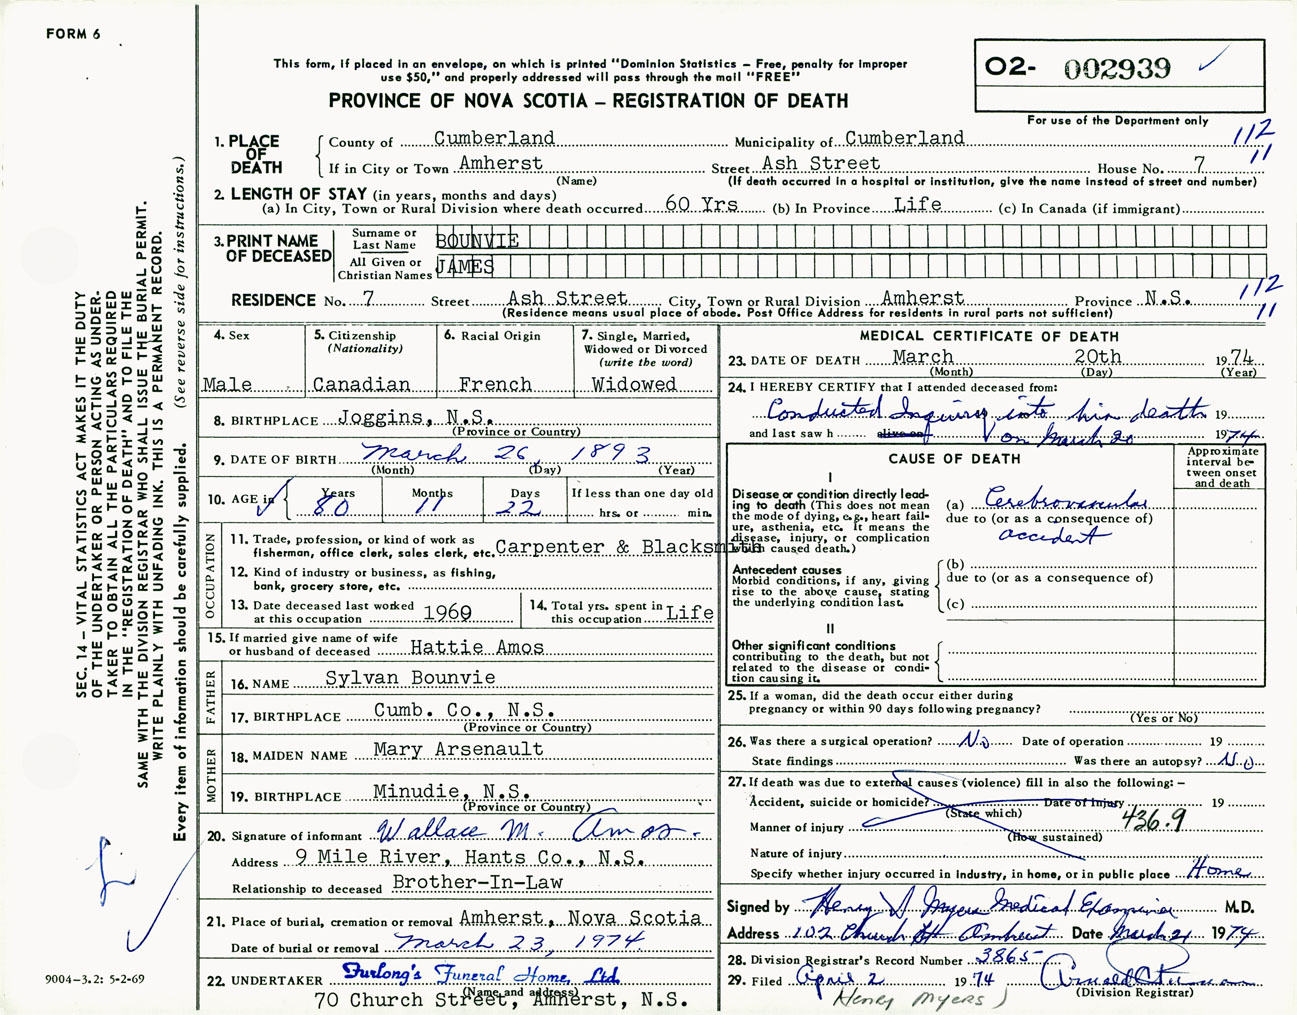 FORM 6
This form, if placed in an envelope, on which is printed "Dominion Statistics – Free, penalty for improper
use $50," and properly addressed will pass through the mail "FREE"
PROVINCE OF NOVA SCOTIA – REGISTRATION OF DEATH
O2- 002939
For use of the Department only
112
11
1. PLACE OF DEATH
County of Cumberland Municipality of Cumberland
If in City or Town Amherst Street Ash Street House No. 7
(Name) (If death occurred in a hospital or institution, give the name instead of street and number)
2. LENGTH OF STAY (in years, months and days)
(a) In City, Town or Rural Division where death occurred 60 Yrs (b) In Province Life (c) In Canada (if immigrant)
3. PRINT NAME OF DECEASED
Surname or Last Name BOUNVIE
All Given or Christian Names JAMES
112
11
RESIDENCE No. 7 Street Ash Street City, Town or Rural Division Amherst Province N.S.
(Residence means usual place of abode. Post Office Address for residents in rural parts not sufficient)
4. Sex
Male
5. Citizenship
(Nationality)
Canadian
6. Racial Origin
French
7. Single, Married,
Widowed or Divorced
(write the word)
Widowed
8. BIRTHPLACE Joggins, N.S.
(Province or Country)
9. DATE OF BIRTH March 26, 1893
(Month) (Day) (Year)
10. AGE in Years 80 Months 11 Days 22 If less than one day old
hrs. or min.
OCCUPATION
11. Trade, profession, or kind of work as
fisherman, office clerk, sales clerk, etc. Carpenter & Blacksmith
12. Kind of industry or business, as fishing,
bank, grocery store, etc.
13. Date deceased last worked
at this occupation 1969
14. Total yrs. spent in
this occupation Life
15. If married give name of wife
or husband of deceased Hattie Amos
FATHER
16. NAME Sylvan Bounvie
17. BIRTHPLACE Cumb. Co., N.S.
(Province or Country)
MOTHER
18. MAIDEN NAME Mary Arsenault
19. BIRTHPLACE Minudie, N.S.
(Province or Country)
20. Signature of informant Wallace M. Amos.
Address 9 Mile River, Hants Co., N.S.
Relationship to deceased Brother-In-Law
21. Place of burial, cremation or removal Amherst, Nova Scotia
Date of burial or removal March 23, 1974
22. UNDERTAKER Furlong's Funeral Home, Ltd.
(Name and address)
70 Church Street, Amherst, N.S.
MEDICAL CERTIFICATE OF DEATH
23. DATE OF DEATH March 20th 1974
(Month) (Day) (Year)
24. I HEREBY CERTIFY that I attended deceased from:
Conducted Inquiry into his death 19
and last saw h alive on on March 20 1974
CAUSE OF DEATH
Approximate
interval be-
tween onset
and death
I
Disease or condition directly lead-
ing to death (This does not mean
the mode of dying, e.g., heart fail-
ure, asthenia, etc. It means the
disease, injury, or complication
which caused death.)
(a) Cerebrovascular
due to (or as a consequence of)
accident
Antecedent causes
Morbid conditions, if any, giving
rise to the above cause, stating
the underlying condition last.
(b)
due to (or as a consequence of)
(c)
II
Other significant conditions
contributing to the death, but not
related to the disease or condi-
tion causing it.
25. If a woman, did the death occur either during
pregnancy or within 90 days following pregnancy?
(Yes or No)
26. Was there a surgical operation? No Date of operation 19
State findings Was there an autopsy? No
27. If death was due to external causes (violence) fill in also the following: –
Accident, suicide or homicide? Date of injury 19
(State which)
436.9
Manner of injury
(How sustained)
Nature of injury
Specify whether injury occurred in industry, in home, or in public place Home
Signed by Henry Myers Medical Examiner M.D.
Address 102 Church St Amherst Date March 21 1974
28. Division Registrar's Record Number 3865
29. Filed April 2 1974
(Division Registrar)
Henry Myers)
SEC. 14 – VITAL STATISTICS ACT MAKES IT THE DUTY
OF THE UNDERTAKER OR PERSON ACTING AS UNDER-
TAKER TO OBTAIN ALL THE PARTICULARS REQUIRED
IN THE "REGISTRATION OF DEATH" AND TO FILE THE
SAME WITH THE DIVISION REGISTRAR WHO SHALL ISSUE THE BURIAL PERMIT.
WRITE PLAINLY WITH UNFADING INK. THIS IS A PERMANENT RECORD.
Every item of information should be carefully supplied. (See reverse side for instructions.)
9004–3.2: 5-2-69